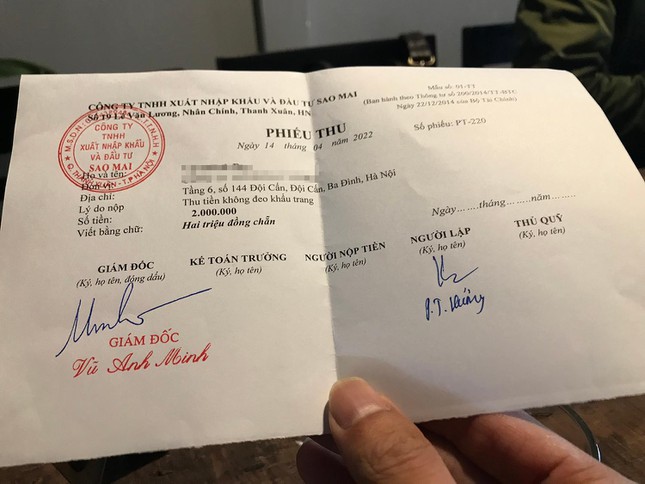 CÔNG TY TNHH XUẤT NHẬP KHẨU VÀ ĐẦU TƯ SAO MAI
Số T9 Lê Văn Lương, Nhân Chính, Thanh Xuân, HN
Mẫu số: 01-TT
(Ban hành theo Thông tư số 200/2014/TT-BTC
Ngày 22/12/2014 của Bộ Tài Chính)
PHIẾU THU
Ngày 14 tháng 04 năm 2022
Số phiếu: PT-220
CÔNG TY
TNHH
XUẤT NHẬP KHẨU
VÀ ĐẦU TƯ
SAO MAI
Họ và tên:
Đơn vị:
Địa chỉ: Tầng 6, số 144 Đội Cấn, Đội Cấn, Ba Đình, Hà Nội
Lý do nộp Thu tiền không đeo khẩu trang
Số tiền: 2.000.000
Viết bằng chữ: Hai triệu đồng chẵn
Ngày......tháng......năm......
GIÁM ĐỐC KẾ TOÁN TRƯỞNG NGƯỜI NỘP TIỀN NGƯỜI LẬP THỦ QUỸ
(Ký, họ tên, đóng dấu) (Ký, họ tên) (Ký, họ tên) (Ký, họ tên) (Ký, họ tên)
GIÁM ĐỐC
Vũ Anh Minh